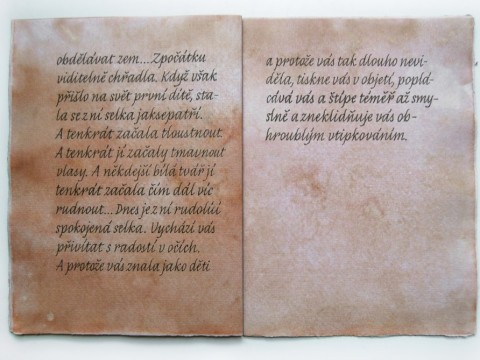 obdělávat zem...Zpočátku
viditelně chřadla. Když však
přišlo na svět první dítě, sta-
la se z ní selka jaksepatří.
A tenkrát začala tloustnout.
A tenkrát jí začaly tmavnout
vlasy. A někdejší bílá tvář jí
tenkrát začala čím dál víc
rudnout... Dnes je z ní rudolící
spokojená selka. Vychází vás
přivítat s radostí v očích.
A protože vás znala jako děti
a protože vás tak dlouho nevi-
děla, tiskne vás v objetí, poplá-
cává vás a štípe téměř až smy-
slně a zneklidňuje vás ob-
hroublým vtipkováním.